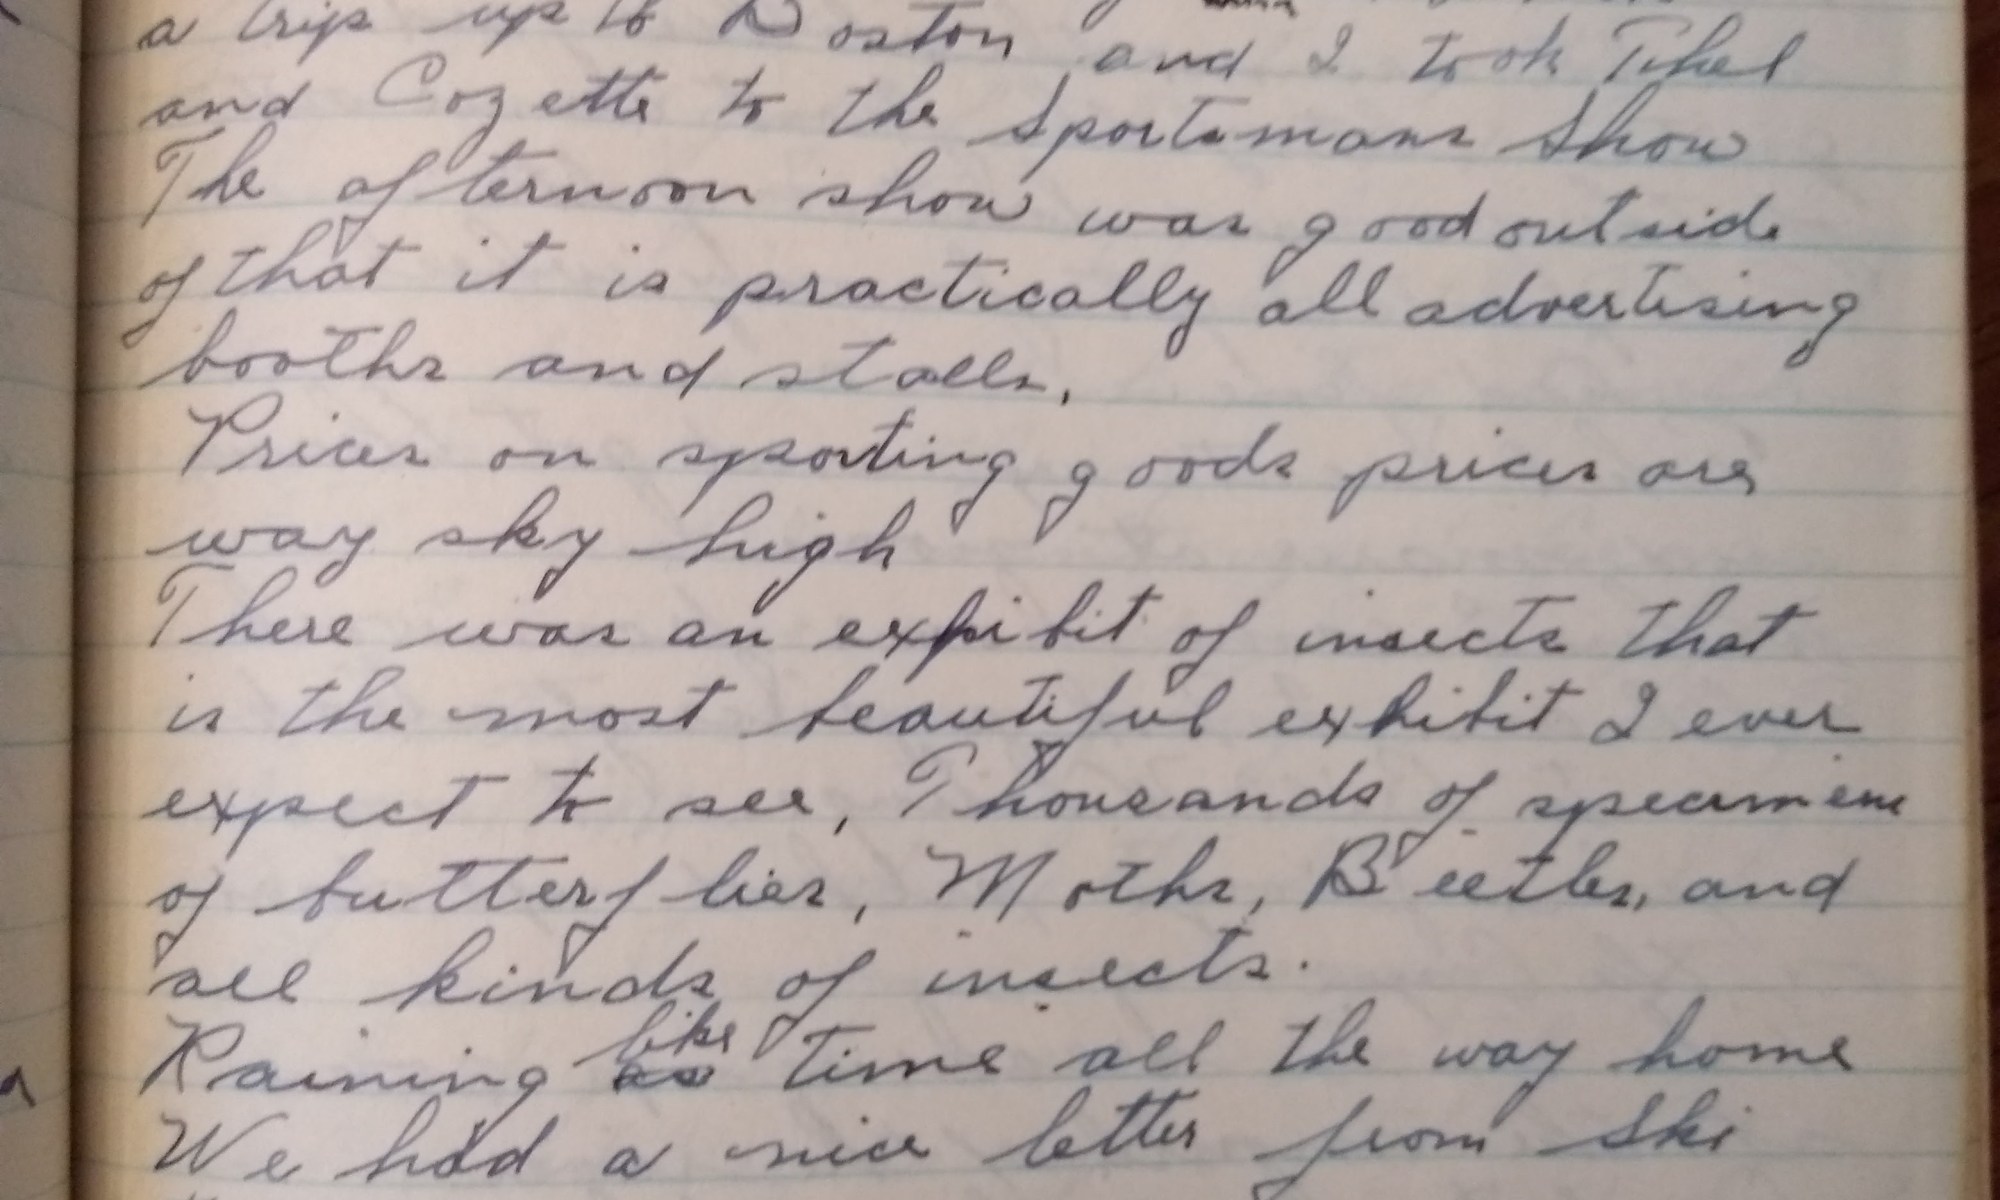 a trip up to Boston and I took
and Cozette to the Sportsmans Show
The afternoon show was good outside
of that it is practically all advertising
booths and stalls,
Prices on sporting goods prices are
way sky high
There was an exhibit of insects that
is the most beautiful exhibit I ever
expect to see, Thousands of specimens
of butterflies, Moths, Beetles, and
all kinds of insects.
Raining like time all the way home
We had a nice letter from Ski